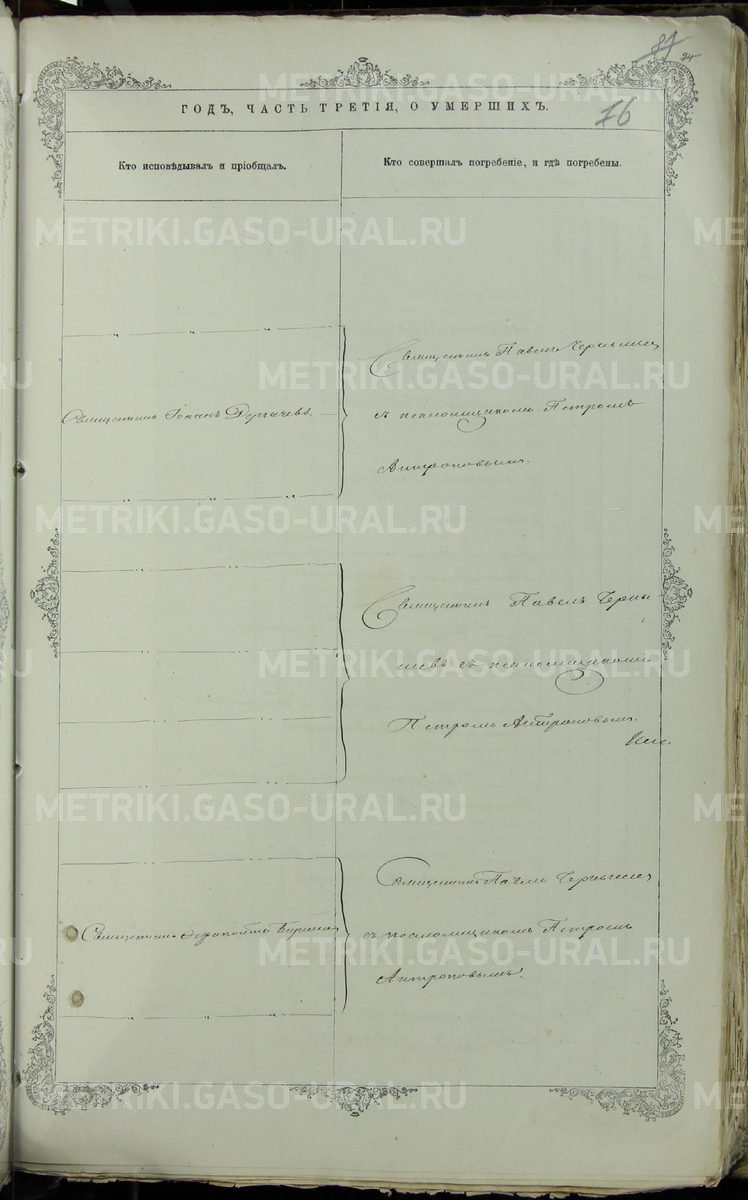 ГОДЪ, ЧАСТЬ ТРЕТІЯ, О УМЕРШИХЪ.
76
Кто исповѣдывалъ и пріобщалъ.
Кто совершалъ погребеніе, и гдѣ погребены.
METRIKI.GASO-URAL.RU
Священникъ Павелъ Чернышевъ
Священникъ Іоаннъ Дергачевъ.
съ псаломщикомъ Петромъ
Антроповымъ.
Священникъ Павелъ Черны
шевъ съ псаломщикомъ
Петромъ Антроповымъ.
Священникъ Павелъ Чернышевъ
Священникъ
съ псаломщикомъ Петромъ
Антроповымъ.